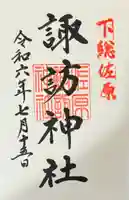 下総佐原
諏訪神社
令和六年七月十五日